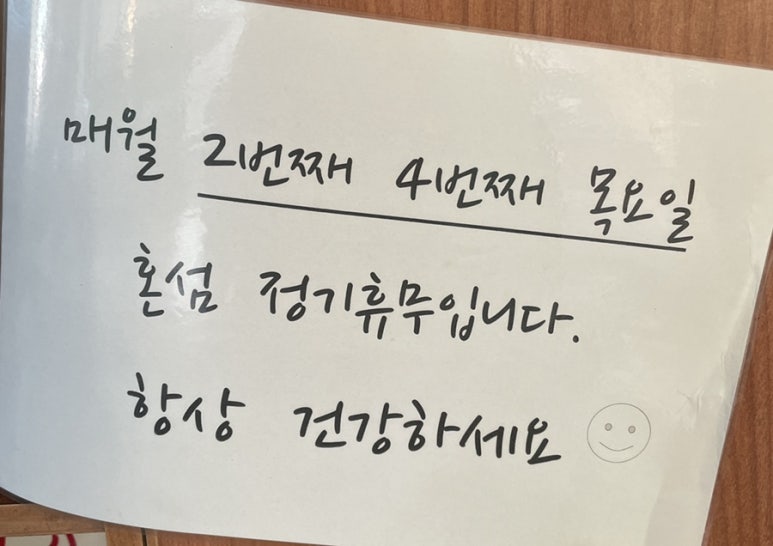 매월 2번째 4번째 목요일
혼섬 정기휴무입니다.
항상 건강하세요